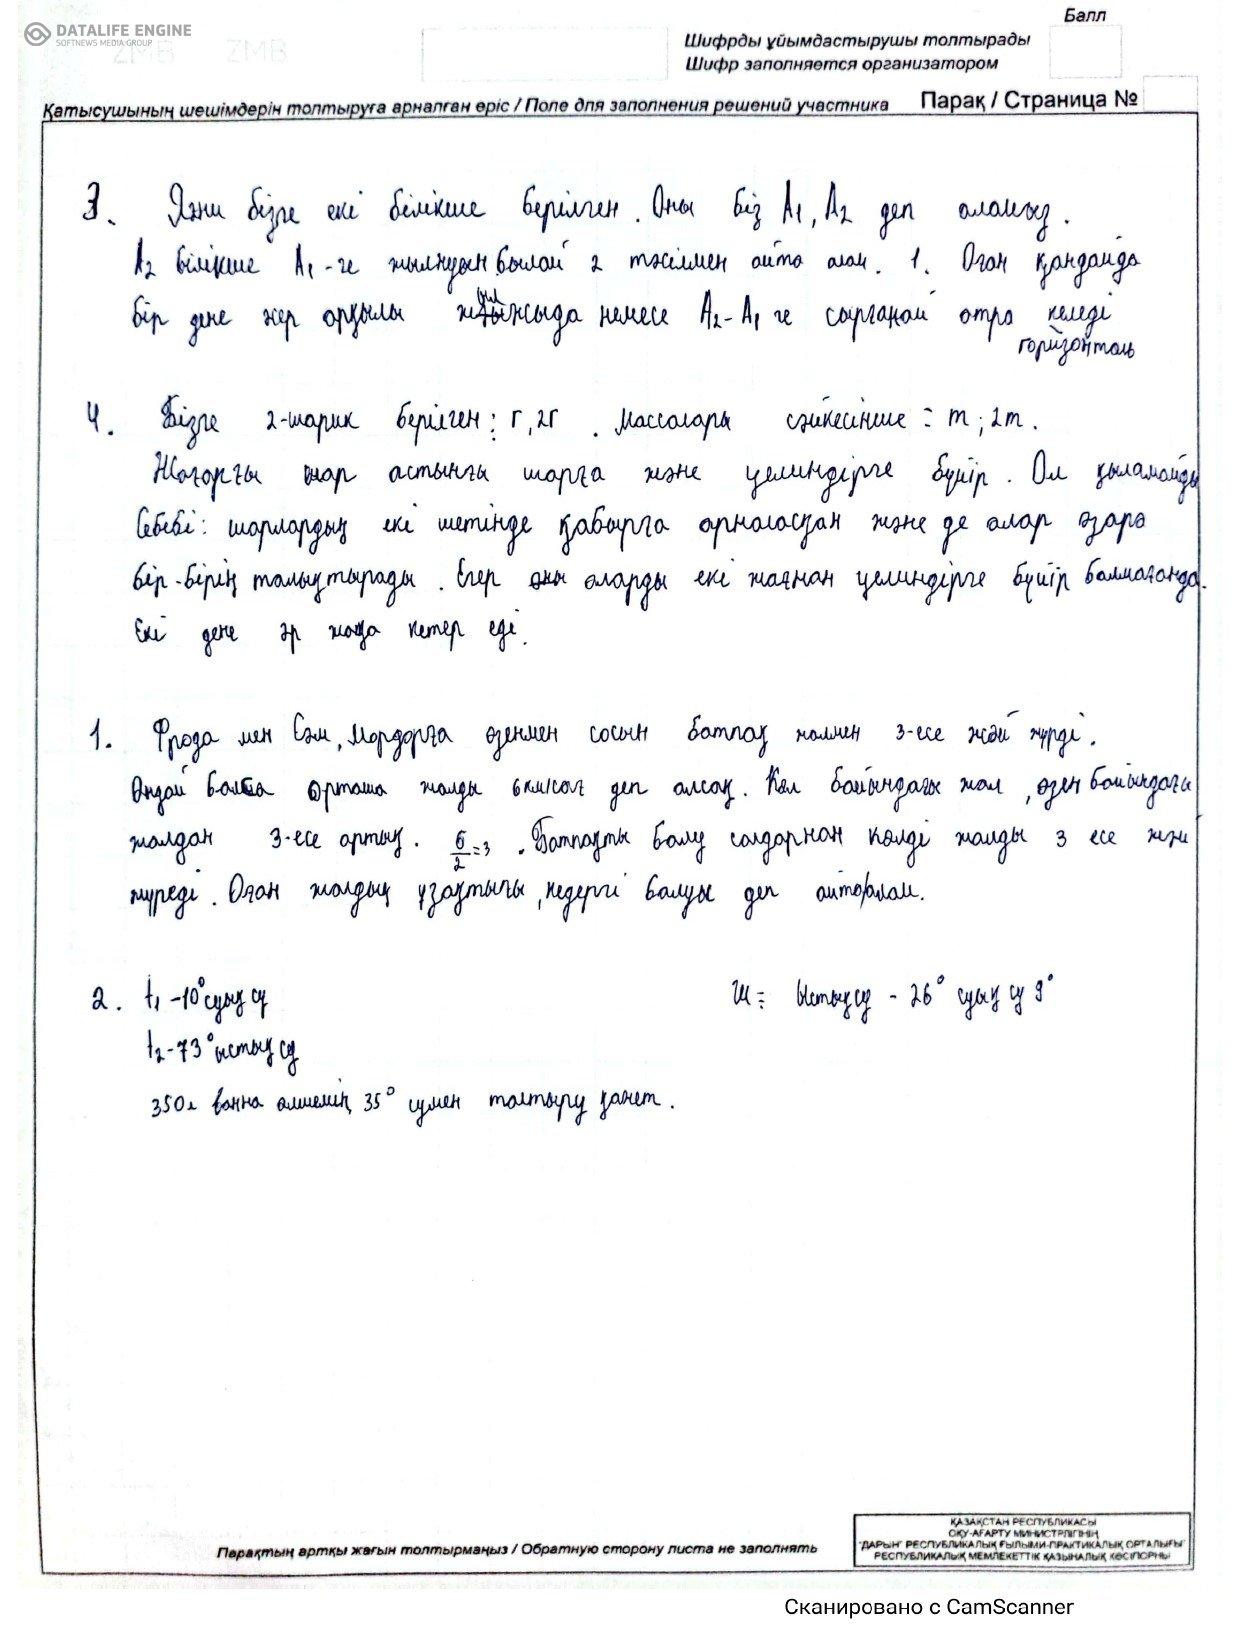 DATALIFE ENGINE
SOFTNEWS MEDIA GROUP
ZMB ZMB
Балл
Шифрды ұйымдастырушы толтырады
Шифр заполняется организатором
Қатысушының шешімдерін толтыруға арналған өріс / Поле для заполнения решений участника
Парақ / Страница №
3. Яғни бізге екі білікше берілген. Оны біз A1, A2 деп аламыз.
A2 білікше A1-ге жылжуын былай 2 тәсілмен айта алам. 1. Оған қандайда
бір дене жер арқылы жылжыда немесе A2-A1 ге сырғанай отра келеді
горизонталь
4. Бізге 2-шарик берілген: r, 2r. Массалары сәйкесінше = m; 2m.
Жоғарғы шар астынғы шарға және целиндірге бүйір. Ол құламайды
Себебі: шарлардың екі шетінде қабырға орналасқан және де олар өзара
бір-бірің толықтырады. Егер оны оларды екі жағнан целиндірге бүйір болмағанда.
Екі дене әр жаққа кетер еді.
1. Фродо мен Сэм, Мордорға өзенмен сосын батпақ жолмен 3-есе жәй жүрді.
Ондай болса орташа жолды 6 км/сағ деп алсақ. Көл бойындағы жол, өзен бойындағы
жолдан 3-есе артық. 6/2=3. Батпақты болу салдарнан көлді жолды 3 есе жәй
жүреді. Оған жолдың ұзақтығы, кедергі болуы деп айтоалам.
2. t1 -10° суық су
Ш = Ыстық су - 26° суық су 9°
t2 -73° ыстық су
350л ванна өлшемің 35° сумен толтыру қажет.
Парақтың артқы жағын толтырмаңыз / Обратную сторону листа не заполнять
ҚАЗАҚСТАН РЕСПУБЛИКАСЫ
ОҚУ-АҒАРТУ МИНИСТРЛІГІНІҢ
"ДАРЫН" РЕСПУБЛИКАЛЫҚ ҒЫЛЫМИ-ПРАКТИКАЛЫҚ ОРТАЛЫҒЫ"
РЕСПУБЛИКАЛЫҚ МЕМЛЕКЕТТІК ҚАЗЫНАЛЫҚ КӘСІПОРНЫ
Сканировано с CamScanner